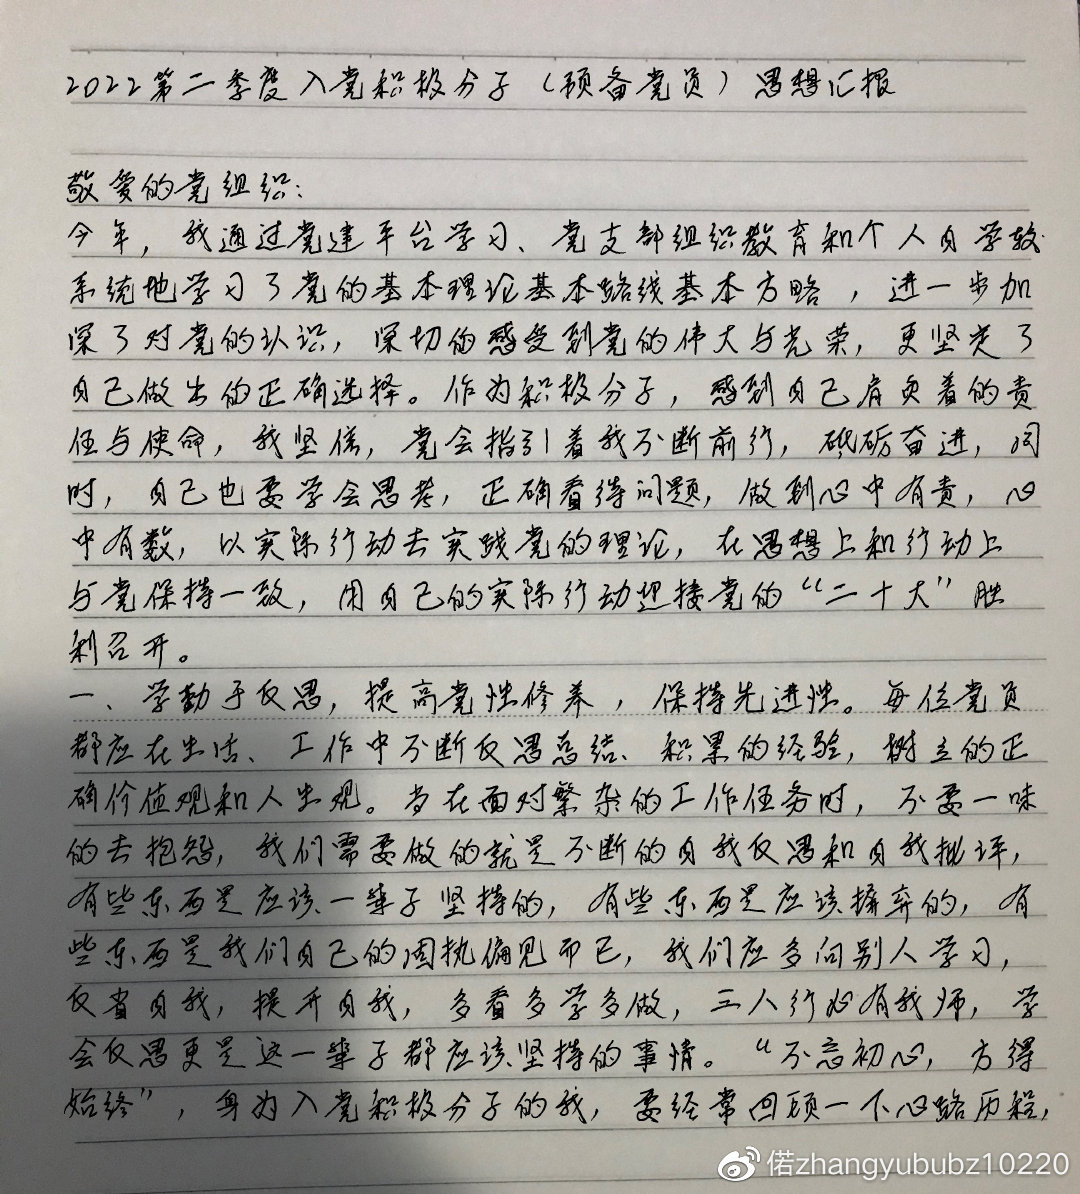 2022第二季度入党积极分子（预备党员）思想汇报
敬爱的党组织：
今年，我通过党建平台学习、党支部组织教育和个人自学较
系统地学习了党的基本理论基本路线基本方略，进一步加
深了对党的认识，深切的感受到党的伟大与光荣，更坚定了
自己做出的正确选择。作为积极分子，感到自己肩负着的责
任与使命，我坚信，党会指引着我不断前行，砥砺奋进，同
时，自己也要学会思考，正确看待问题，做到心中有责，心
中有数，以实际行动去实践党的理论，在思想上和行动上
与党保持一致，用自己的实际行动迎接党的“二十大”胜
利召开。
一、学勤于反思，提高党性修养，保持先进性。每位党员
都应在生活、工作中不断反思总结、积累的经验，树立的正
确价值观和人生观。当在面对繁杂的工作任务时，不要一味
的去抱怨，我们需要做的就是不断的自我反思和自我批评，
有些东西是应该一辈子坚持的，有些东西是应该摒弃的，有
些东西是我们自己的固执偏见而已，我们应多向别人学习，
反省自我，提升自我，多看多学多做，三人行必有我师，学
会反思更是这一辈子都应该坚持的事情。“不忘初心，方得
始终”，身为入党积极分子的我，要经常回顾一下心路历程，
偌zhangyububz10220